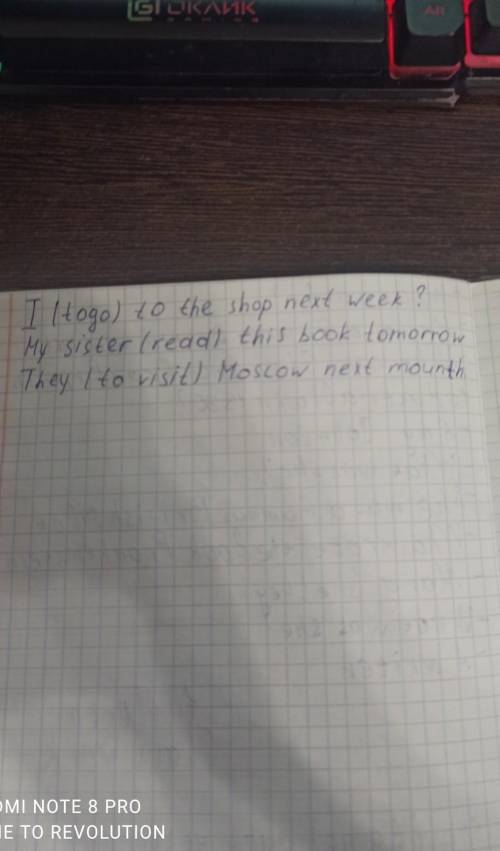 ОКЛИК
GAMING
Alt
I (togo) to the shop next week?
My sister (read) this book tomorrow
They (to visit) Moscow next mounth
DMI NOTE 8 PRO
NE TO REVOLUTION